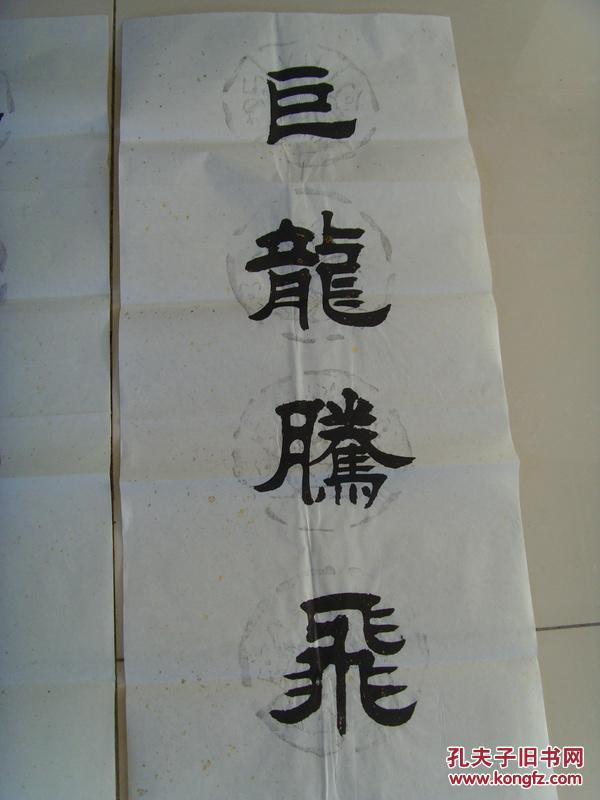 巨龍騰飛
孔夫子旧书网
www.kongfz.com